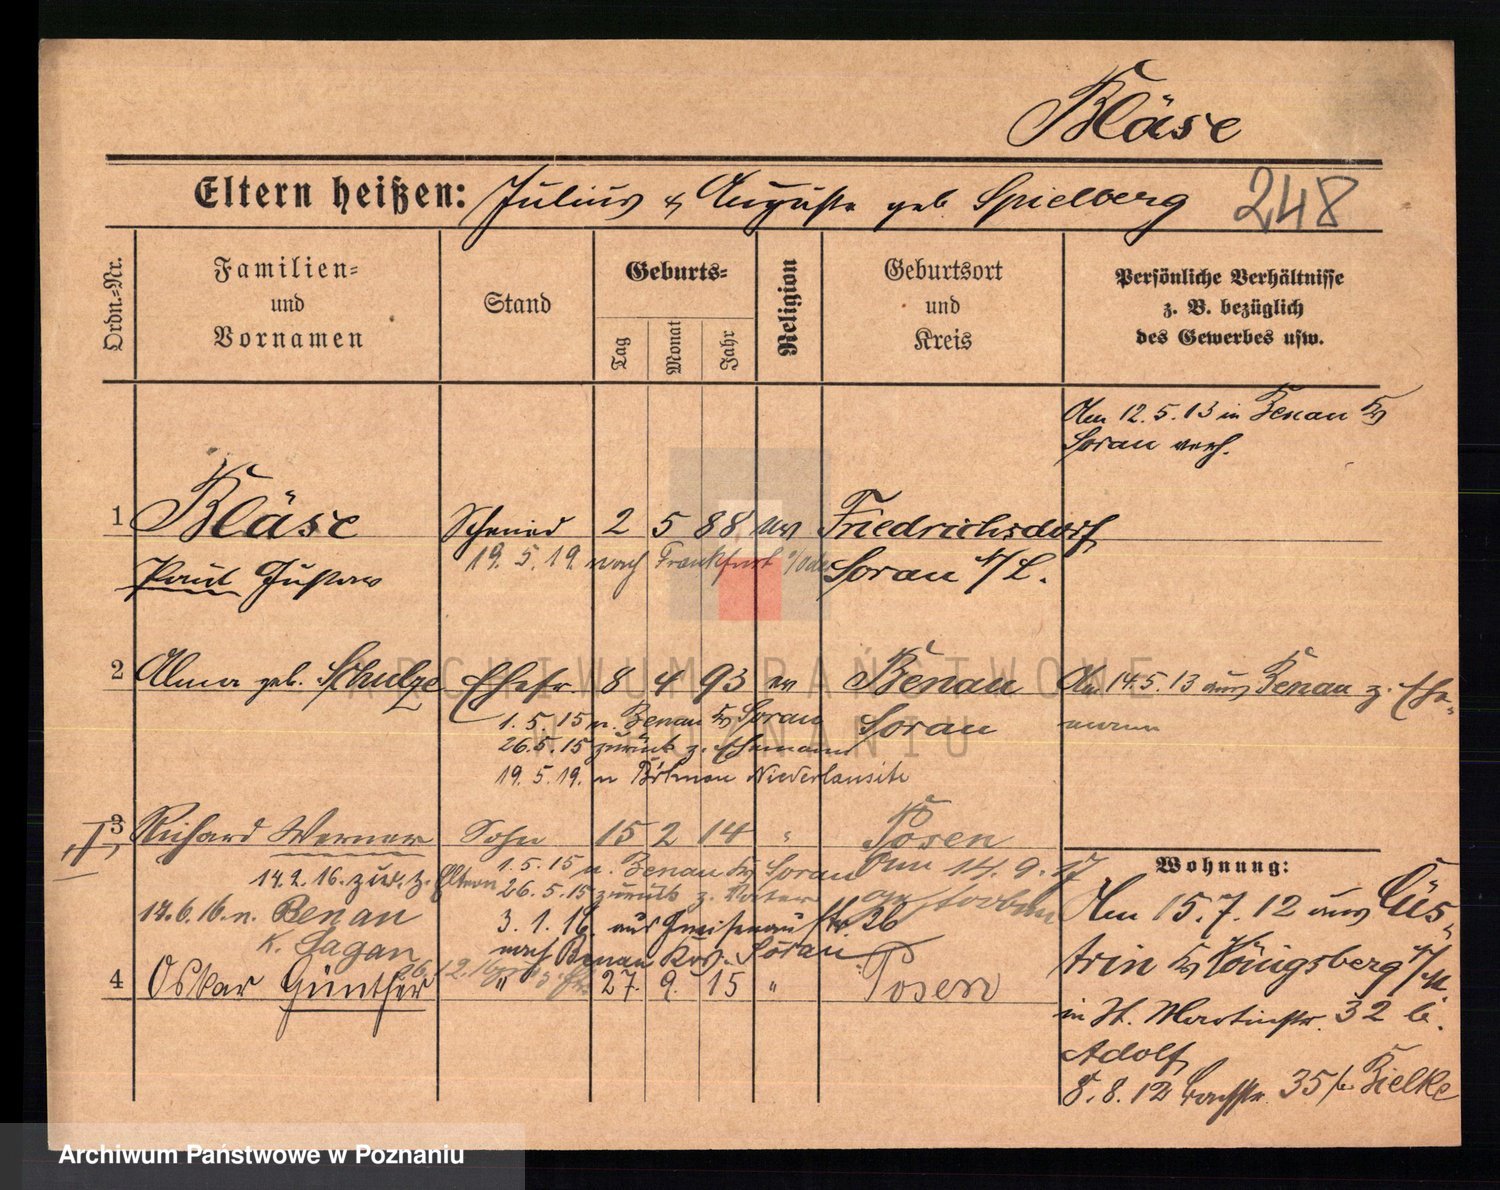 Bläse
Eltern heißen: Julius & Auguste geb Spielberg 248
Ordn.=Nr.
Familien=
und
Vornamen
Stand
Geburts=
Tag
Monat
Jahr
Religion
Geburtsort
und
Kreis
Persönliche Verhältnisse
z. B. bezüglich
des Gewerbes usw.
Am 12.5.13 in Benau Kr
Sorau verh.
1 Bläse Schmied 2 5 88 ev Friedrichsdorf
19.5.19 nach Frankfurt a/Oder
Paul Gustav Sorau N/L.
2 Alma geb. Schulze Ehefr. 8 4 93 ev Benau Am 14.5.13 aus Benau z. Ehe-
mann
1.5.15 n. Benau Kr Sorau Sorau
26.5.15 zurück z. Ehemann
19.5.19. n Niederlausitz
3 Richard Werner Sohn 15 2 14 " Posen
1.5.15 n. Benau Kr Sorau Am 14.9.17
14.2.16. zur. z. Eltern 26.5.15 zurück z. Vater gestorben
14.6.16. n. Benau 3.1.16. aus Gneisenaustr. 26
K. Sagan nach Benau Krs. Sorau
4 Oskar Günther " 27. 9. 15 " Posen
Wohnung:
Am 15.7.12 aus Cüs-
trin Kr Königsberg N/M
in St. Martinstr. 32 bei
Adolf
8.8.12 35 b. Bielke
ARCHIWUM PAŃSTWOWE
W POZNANIU
Archiwum Państwowe w Poznaniu